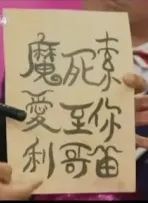 索你笛
死至哥
魔愛利